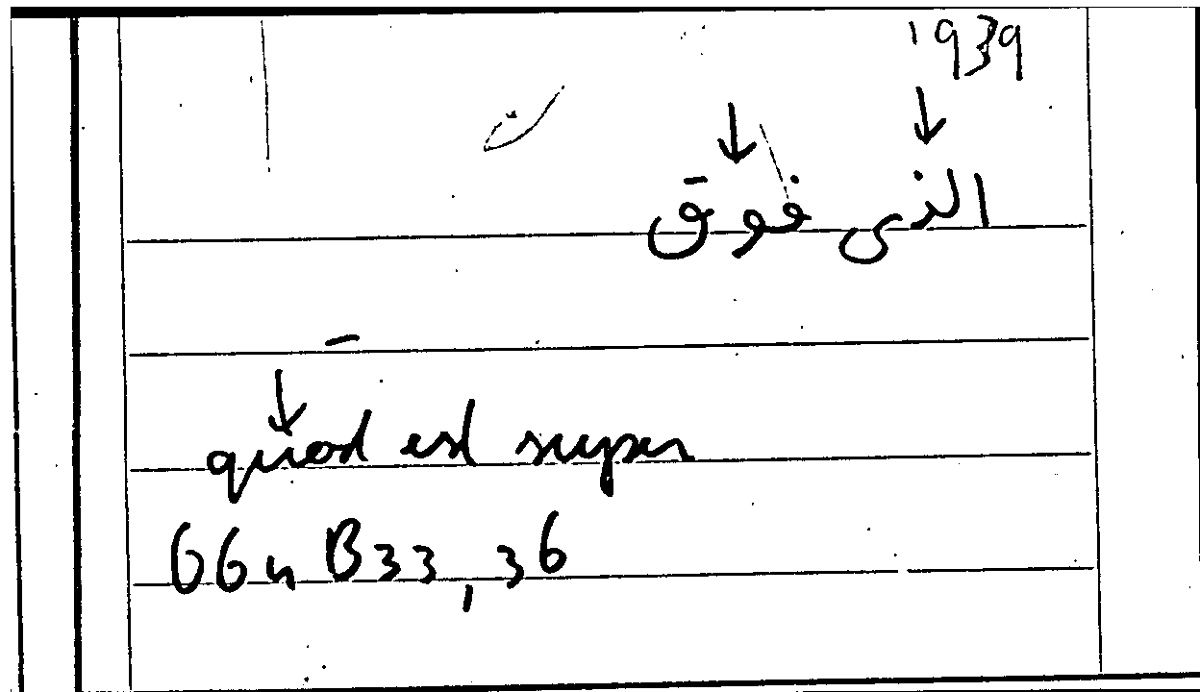 1939
الذى فوق
quod est super
66u B33,36